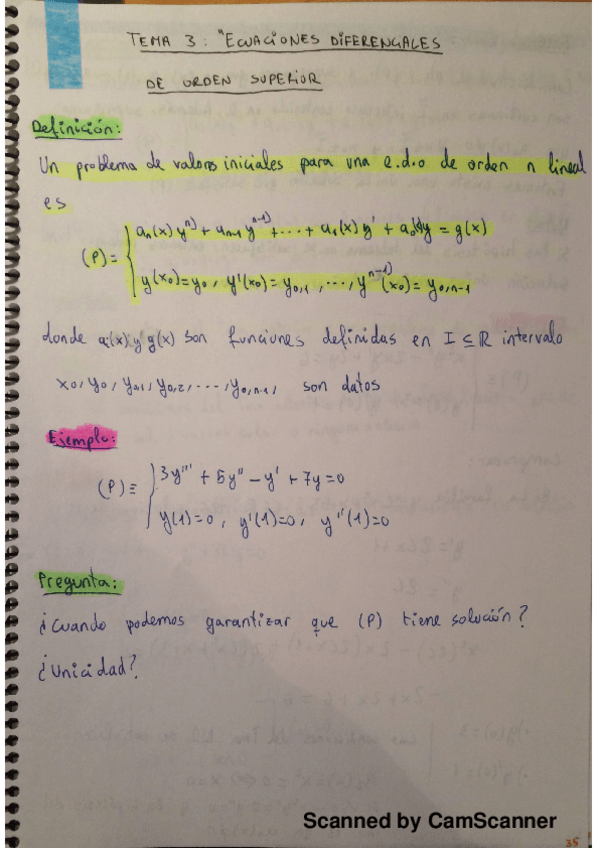 TEMA 3: "ECUACIONES DIFERENCIALES
DE ORDEN SUPERIOR
Definición:
Un problema de valores iniciales para una e.d.o de orden n lineal
es
(P)= { aₙ(x) yⁿ⁾ + aₙ₋₁ yⁿ⁻¹⁾ + ... + a₁(x) y' + a₀(x)y = g(x)
y(x₀)=y₀, y'(x₀)=y₀,₁, ..., yⁿ⁻¹⁾(x₀)=y₀,ₙ₋₁
donde aᵢ(x) y g(x) son funciones definidas en I ⊆ ℝ intervalo
x₀, y₀, y₀,₁, y₀,₂, ..., y₀,ₙ₋₁, son datos
Ejemplo:
(P) ≡ { 3y''' + 5y'' - y' + 7y = 0
y(1)=0, y'(1)=0, y''(1)=0
Pregunta:
¿Cuando podemos garantizar que (P) tiene solución?
¿Unicidad?
Scanned by CamScanner
35